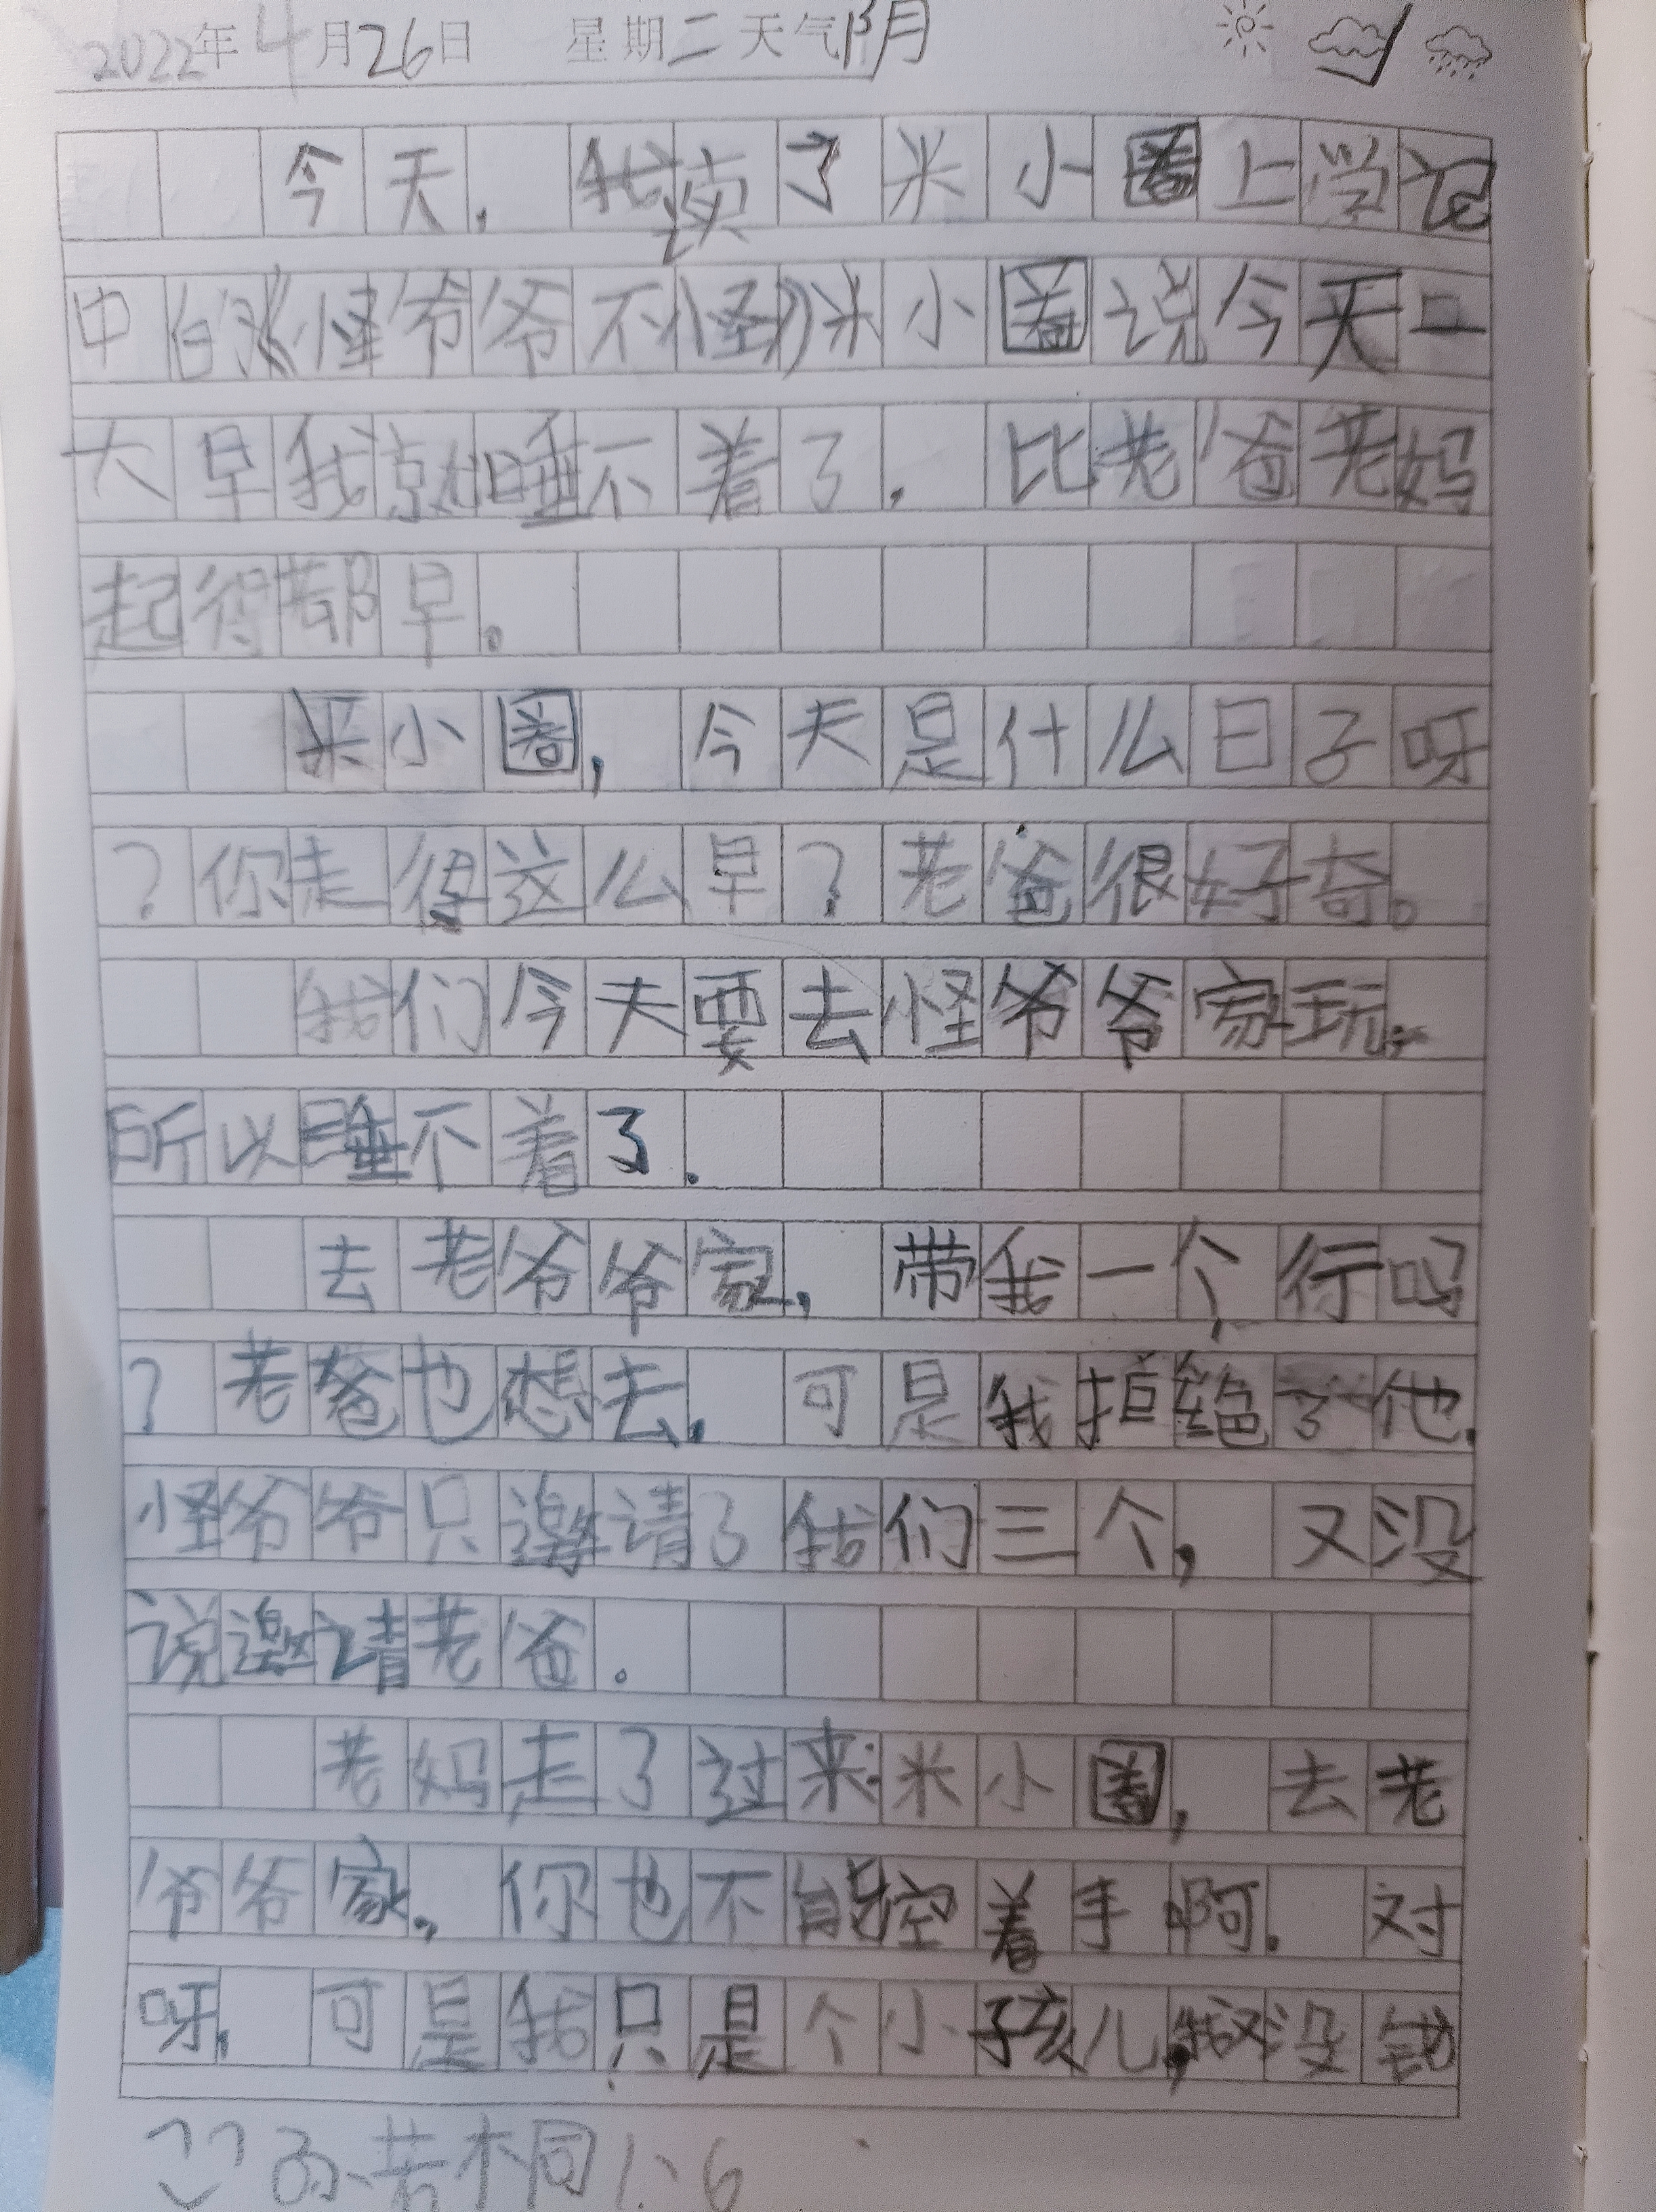 2022年4月26日 星期二 天气阴
今天，我读了米小圈上学记
中的《怪爷爷不怪》米小圈说今天一
大早我就睡不着了，比老爸老妈
起得都早。
米小圈，今天是什么日子呀
？你走得这么早？老爸很好奇。
我们今天要去怪爷爷家玩，
所以睡不着了.
去老爷爷家，带我一个行吗
？老爸也想去，可是我拒绝了他.
怪爷爷只邀请了我们三个，又没
说邀请老爸。
老妈走了过来：米小圈，去老
爷爷家，你也不能空着手啊.对
呀，可是我只是个小孩儿，我又没钱
不同 1、6